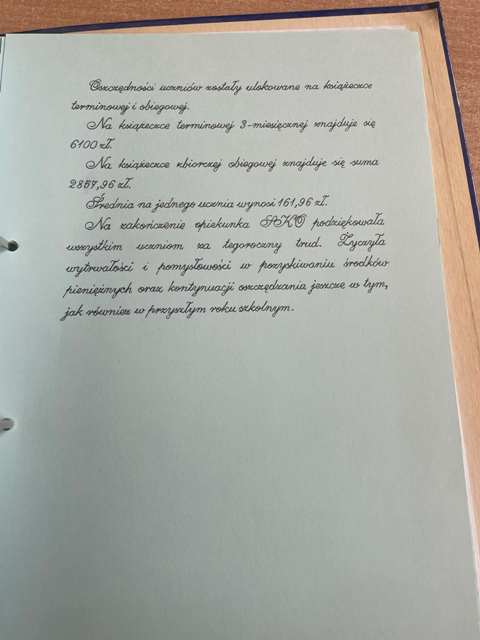 Oszczędności uczniów zostały ulokowane na książeczce
terminowej i obiegowej.
Na książeczce terminowej 3-miesięcznej znajduje się
6100 zł.
Na książeczce zbiorczej obiegowej znajduje się suma
2857,96 zł.
Średnia na jednego ucznia wynosi 161,96 zł.
Na zakończenie opiekunka SKO podziękowała
wszystkim uczniom za tegoroczny trud. Życzyła
wytrwałości i pomysłowości w pozyskiwaniu środków
pieniężnych oraz kontynuacji oszczędzania jeszcze w tym,
jak również w przyszłym roku szkolnym.